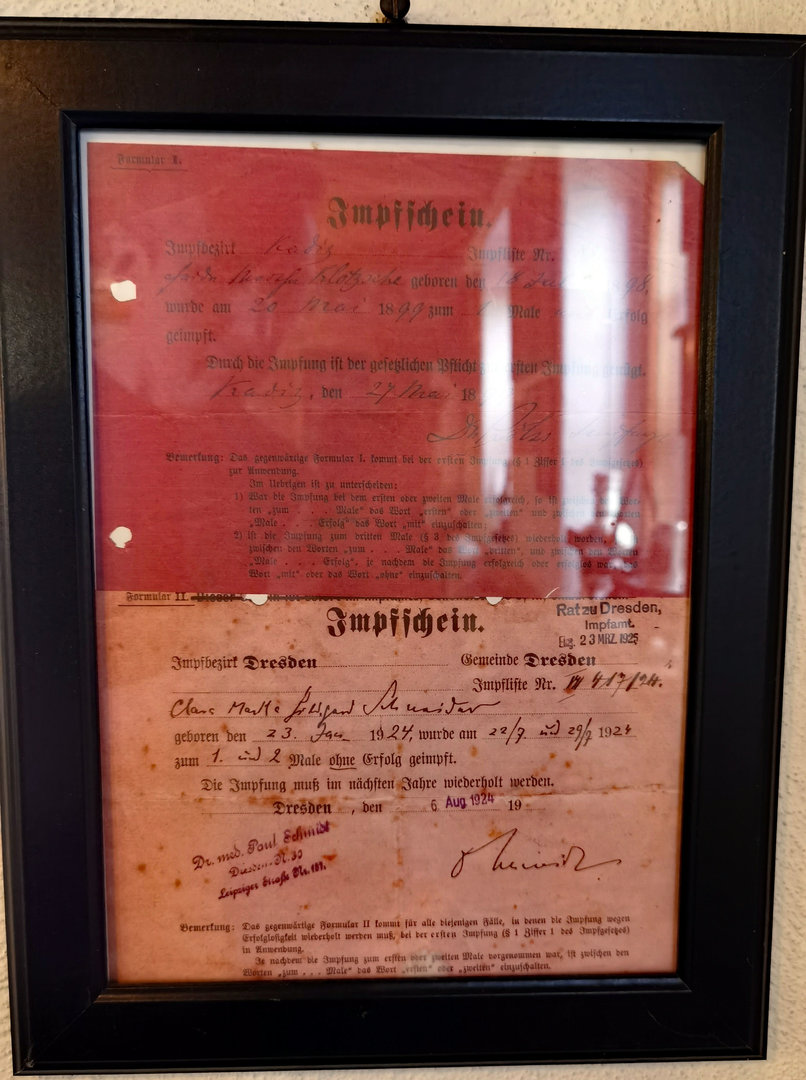 Formular I.
Impfschein.
Impfbezirk Kaditz Impfliste Nr.
Klotzsche geboren den 18 Juli 1898,
wurde am 20 Mai 1899 zum 1 Male Erfolg
geimpft.
Durch die Impfung ist der gesetzlichen Pflicht zur ersten Impfung genügt.
Kaditz, den 27 Mai 18
Bemerkung: Das gegenwärtige Formular I. kommt bei der ersten Impfung (§ 1 Ziffer 1 des Impfgesetzes)
zur Anwendung.
Im Uebrigen ist zu unterscheiden:
1) War die Impfung bei dem ersten oder zweiten Male erfolgreich, so ist zwischen den Wor-
ten „zum . . . Male" das Wort „ersten" oder „zweiten" und zwischen den Worten
„Male . . . Erfolg" das Wort „mit" einzuschalten;
2) ist die Impfung zum dritten Male (§ 3 des Impfgesetzes) wiederholt worden,
zwischen den Worten „zum . . . Male" das Wort „dritten", und zwischen den Worten
„Male . . . Erfolg", je nachdem die Impfung erfolgreich oder erfolglos war, das
Wort „mit" oder das Wort „ohne" einzuschalten.
Formular II.
Impfschein.
Rat zu Dresden,
Impfamt.
Eing. 23 MRZ. 1925
Impfbezirk Dresden Gemeinde Dresden
Impfliste Nr. VI 417/24.
Clara Martha Hildegard Schneider
geboren den 23. Jan 1924, wurde am 22/7 und 29/7 1924
zum 1. und 2 Male ohne Erfolg geimpft.
Die Impfung muß im nächsten Jahre wiederholt werden.
Dresden, den 6 Aug 1924 19
Dr. med. Paul Schmidt
Dresden-N. 30
Leipziger Straße Nr. 181.
Schmidt
Bemerkung: Das gegenwärtige Formular II kommt für alle diejenigen Fälle, in denen die Impfung wegen
Erfolglosigkeit wiederholt werden muß, bei der ersten Impfung (§ 1 Ziffer 1 des Impfgesetzes)
in Anwendung.
Je nachdem die Impfung zum ersten oder zweiten Male vorgenommen war, ist zwischen den
Worten „zum . . . Male" das Wort „ersten" oder „zweiten" einzuschalten.